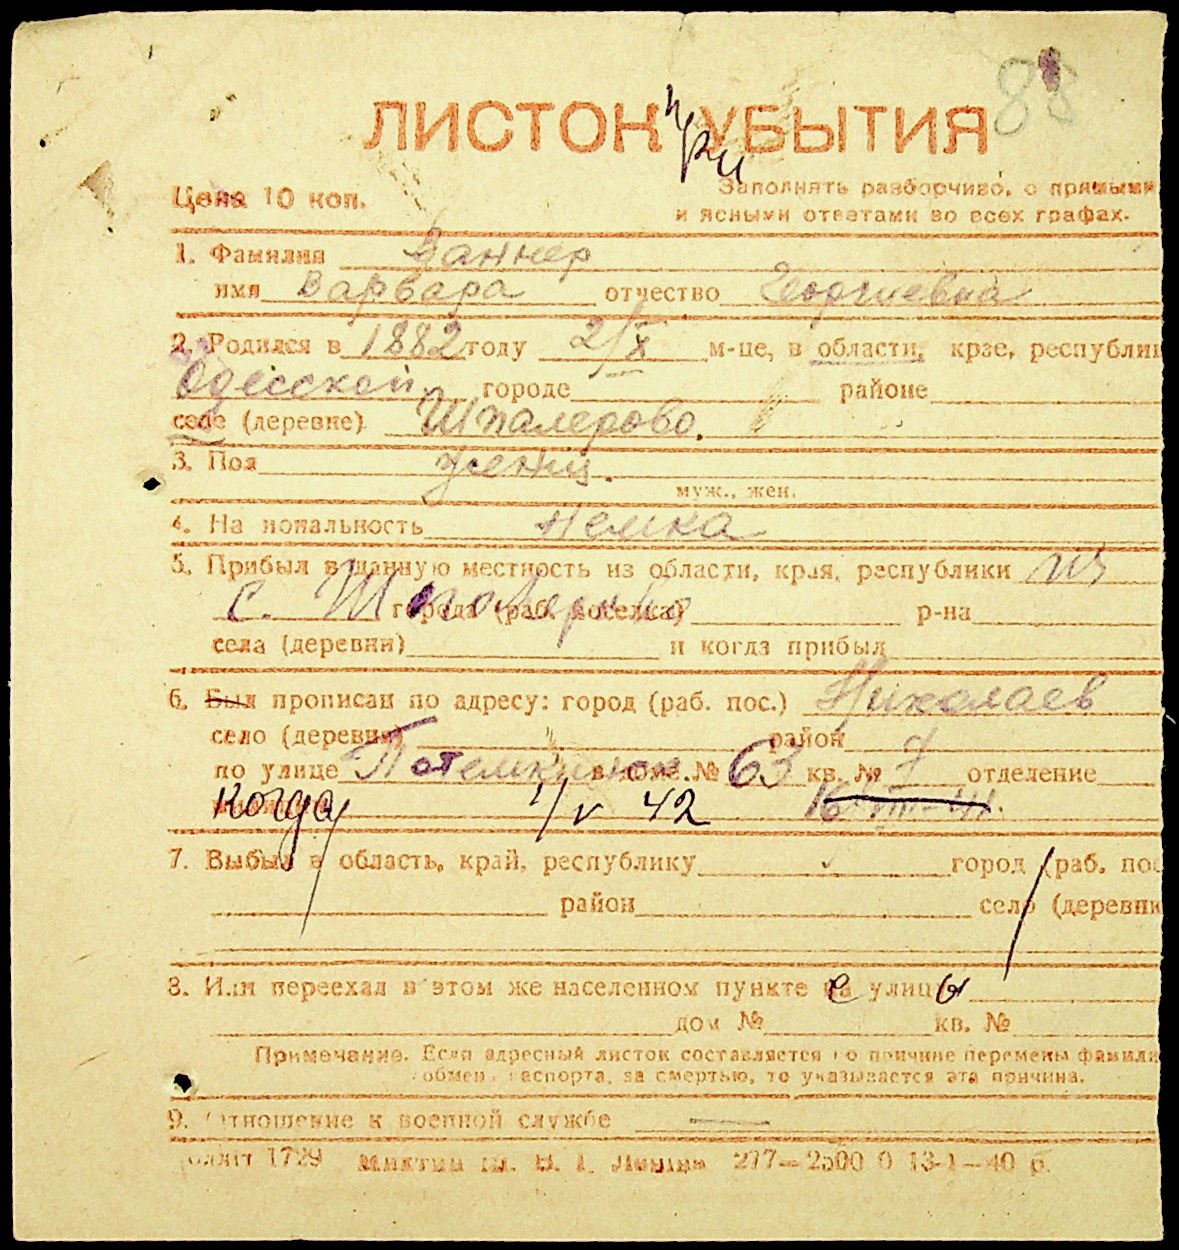 88
ЛИСТОК УБЫТИЯ
при
Цена 10 коп.
Заполнять разборчиво, с прямыми
и ясными ответами во всех графах.
1. Фамилия Ваннер
имя Варвара отчество Георгиевна
2. Родился в 1882 году 2/X м-це, в области, крае, республик
Одесской городе районе
селе (деревне) Шпалерово.
3. Пол женщ.
муж., жен.
4. На иональность немка
5. Прибыл в данную местность из области, края, республики из
с. города (раб. поселка) р-на
села (деревни) и когда прибыл
6. Был прописан по адресу: город (раб. пос.) Николаев
село (деревня) район
по улице в доме № 63 кв. № 7 отделение
когда 1/V 42 16 VIII-41.
7. Выбыл в область, край, республику город (раб. пос
район село (деревни
8. Или переехал в этом же населенном пункте улиц
дом № кв. №
Примечание. Если адресный листок составляется о причине перемены фамили
обмен аспорта, за смертью, то указывается эта причина.
9. тношение к военной службе —
1729 277—2500 0 13-1—40 р.